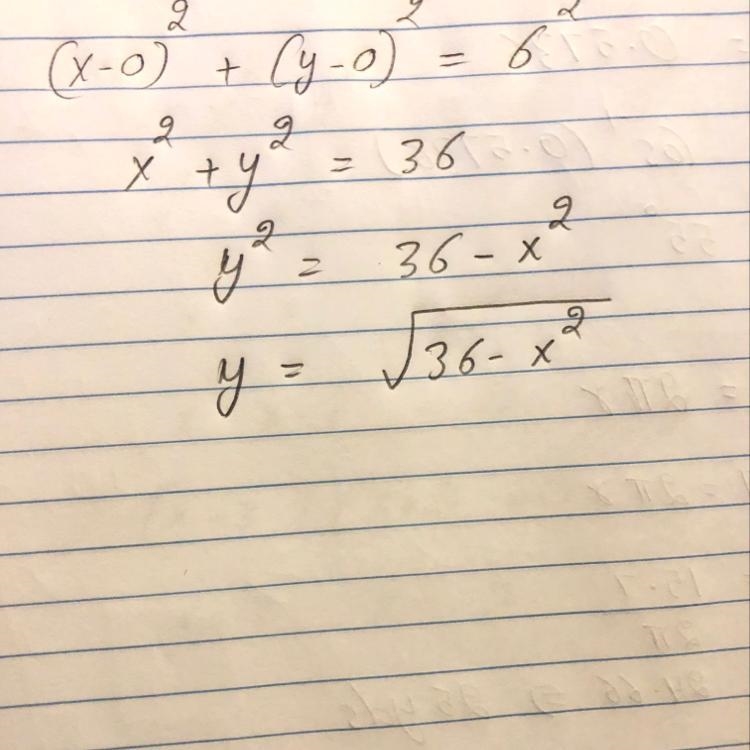 (x-0)² + (y-0)² = 6²
x² + y² = 36
y² = 36 - x²
y = √(36 - x²)